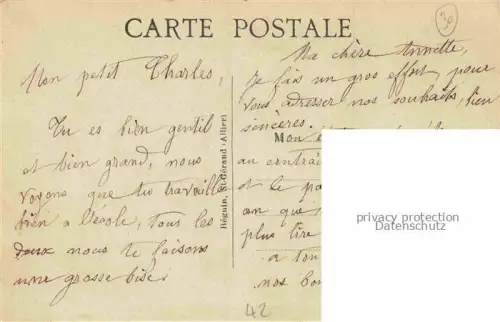 CARTE POSTALE
30
Mon petit Charles,
Tu es bien gentil
et bien grand, nous
voyons que tu travailles
bien a l'école, tous les
deux nous te faisons
une grosse bise.
Béguin, St-Gérand (Allier)
Ma chère Annette,
Je fais un gros effort, pour
vous adresser nos souhaits, bien
sincères.
Mon
au contrai
et le pa
an que
plus lire
a tou
nos bon
privacy protection
Datenschutz
42